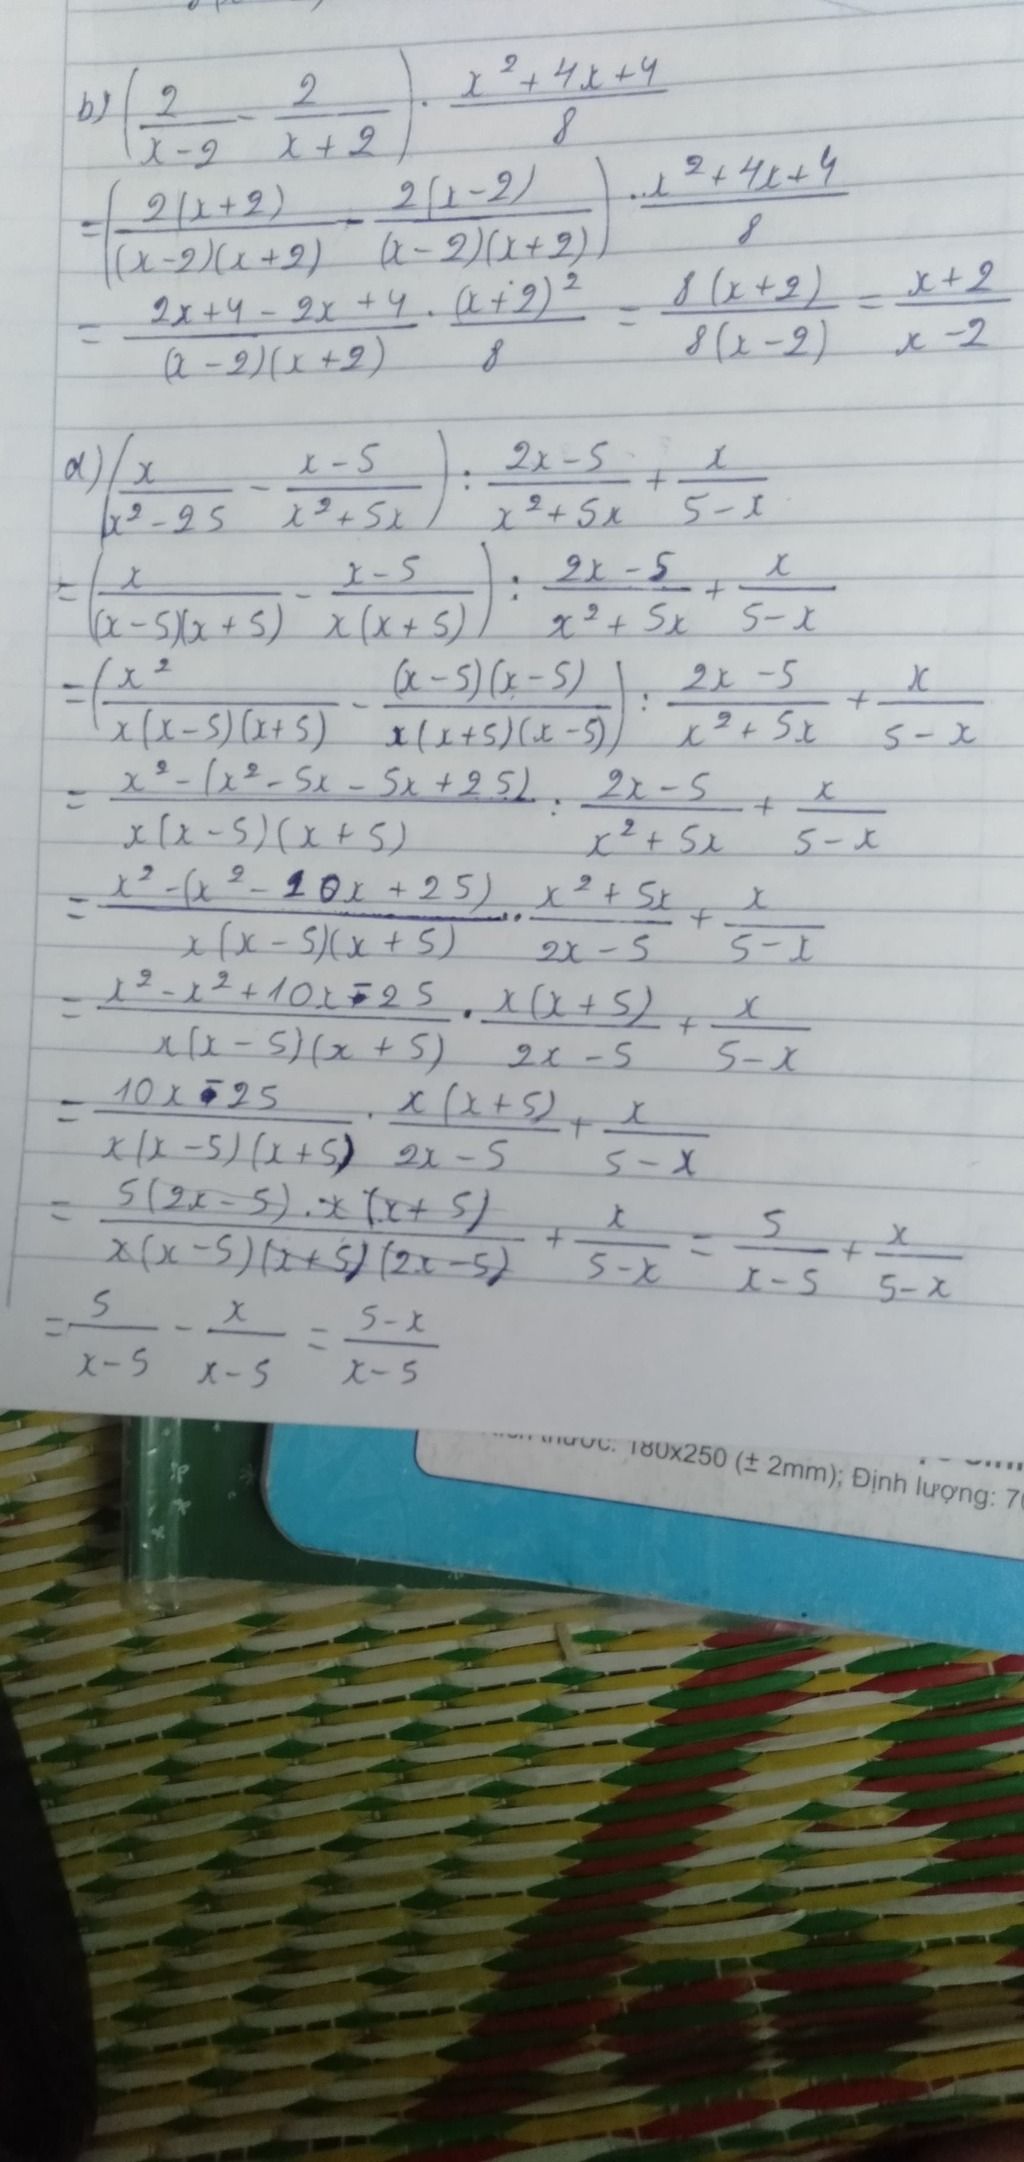 b) (2/(x-2) - 2/(x+2)) . (x²+4x+4)/8
= (2(x+2)/((x-2)(x+2)) - 2(x-2)/((x-2)(x+2))) . (x²+4x+4)/8
= (2x+4-2x+4)/((x-2)(x+2)) . (x+2)²/8 = 8(x+2)/(8(x-2)) = (x+2)/(x-2)
d) (x/(x²-25) - (x-5)/(x²+5x)) : (2x-5)/(x²+5x) + x/(5-x)
= (x/((x-5)(x+5)) - (x-5)/(x(x+5))) : (2x-5)/(x²+5x) + x/(5-x)
= (x²/(x(x-5)(x+5)) - (x-5)(x-5)/(x(x+5)(x-5))) : (2x-5)/(x²+5x) + x/(5-x)
= (x²-(x²-5x-5x+25))/(x(x-5)(x+5)) : (2x-5)/(x²+5x) + x/(5-x)
= (x²-(x²-10x+25))/(x(x-5)(x+5)) . (x²+5x)/(2x-5) + x/(5-x)
= (x²-x²+10x-25)/(x(x-5)(x+5)) . x(x+5)/(2x-5) + x/(5-x)
= (10x-25)/(x(x-5)(x+5)) . x(x+5)/(2x-5) + x/(5-x)
= (5(2x-5).x(x+5))/(x(x-5)(x+5)(2x-5)) + x/(5-x) = 5/(x-5) + x/(5-x)
= 5/(x-5) - x/(x-5) = (5-x)/(x-5)
thước: 180x250 (± 2mm); Định lượng: 7